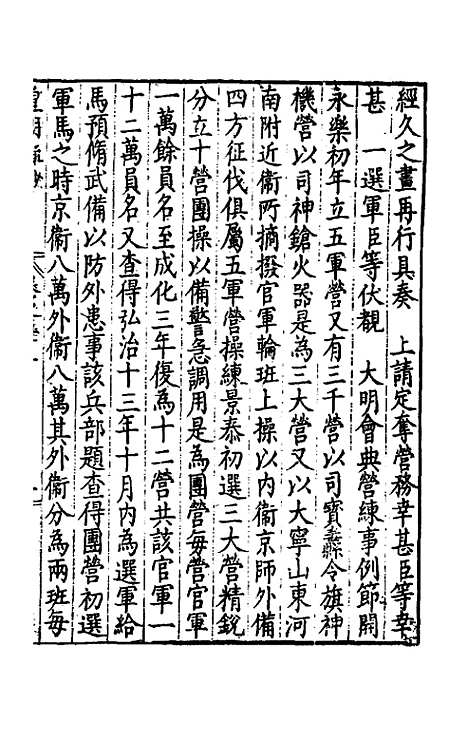 經久之畫再行具奏　上請定奪營務幸甚臣等幸
甚　一選軍臣等伏覩　大明會典營練事例節開
永樂初年立五軍營又有三千營以司寶纛令旗神
機營以司神鎗火器是為三大營又以大寧山東河
南附近衛所摘撥官軍輪班上操以內衛京師外備
四方征伐俱屬五軍營操練景泰初選三大營精銳
分立十營團操以備警急調用是為團營每營官軍
一萬餘員名至成化三年復為十二營共該官軍一
十二萬員名又查得弘治十三年十月內為選軍給
馬預脩武備以防外患事該兵部題查得團營初選
軍馬之時京衛八萬外衛八萬其外衛分為兩班每